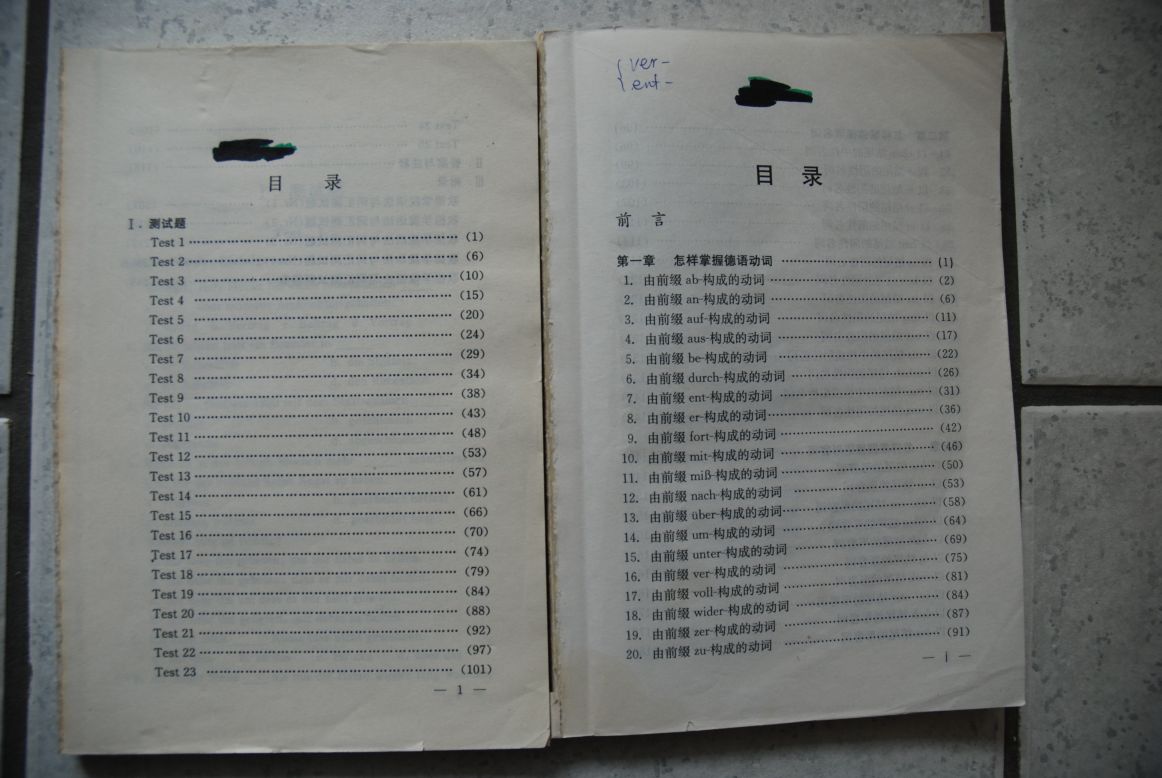 目 录
Ⅰ. 测试题
Test 1 ……………………………… (1)
Test 2 ……………………………… (6)
Test 3 ……………………………… (10)
Test 4 ……………………………… (15)
Test 5 ……………………………… (20)
Test 6 ……………………………… (24)
Test 7 ……………………………… (29)
Test 8 ……………………………… (34)
Test 9 ……………………………… (38)
Test 10 ……………………………… (43)
Test 11 ……………………………… (48)
Test 12 ……………………………… (53)
Test 13 ……………………………… (57)
Test 14 ……………………………… (61)
Test 15 ……………………………… (66)
Test 16 ……………………………… (70)
Test 17 ……………………………… (74)
Test 18 ……………………………… (79)
Test 19 ……………………………… (84)
Test 20 ……………………………… (88)
Test 21 ……………………………… (92)
Test 22 ……………………………… (97)
Test 23 ……………………………… (101)
— 1 —
ver-
ent-
目 录
前 言
第一章 怎样掌握德语动词 ………………… (1)
1. 由前缀 ab-构成的动词 ………………… (2)
2. 由前缀 an-构成的动词 ………………… (6)
3. 由前缀 auf-构成的动词 ………………… (11)
4. 由前缀 aus-构成的动词 ………………… (17)
5. 由前缀 be-构成的动词 ………………… (22)
6. 由前缀 durch-构成的动词 ………………… (26)
7. 由前缀 ent-构成的动词 ………………… (31)
8. 由前缀 er-构成的动词 ………………… (36)
9. 由前缀 fort-构成的动词 ………………… (42)
10. 由前缀 mit-构成的动词 ………………… (46)
11. 由前缀 miß-构成的动词 ………………… (50)
12. 由前缀 nach-构成的动词 ………………… (53)
13. 由前缀 über-构成的动词 ………………… (58)
14. 由前缀 um-构成的动词 ………………… (64)
15. 由前缀 unter-构成的动词 ………………… (69)
16. 由前缀 ver-构成的动词 ………………… (75)
17. 由前缀 voll-构成的动词 ………………… (81)
18. 由前缀 wider-构成的动词 ………………… (84)
19. 由前缀 zer-构成的动词 ………………… (87)
20. 由前缀 zu-构成的动词 ………………… (91)
— Ⅰ —